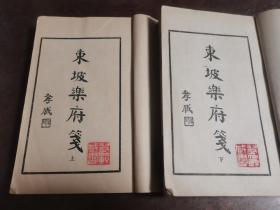 東坡樂府箋
上
孝臧
東坡樂府箋
下
孝臧